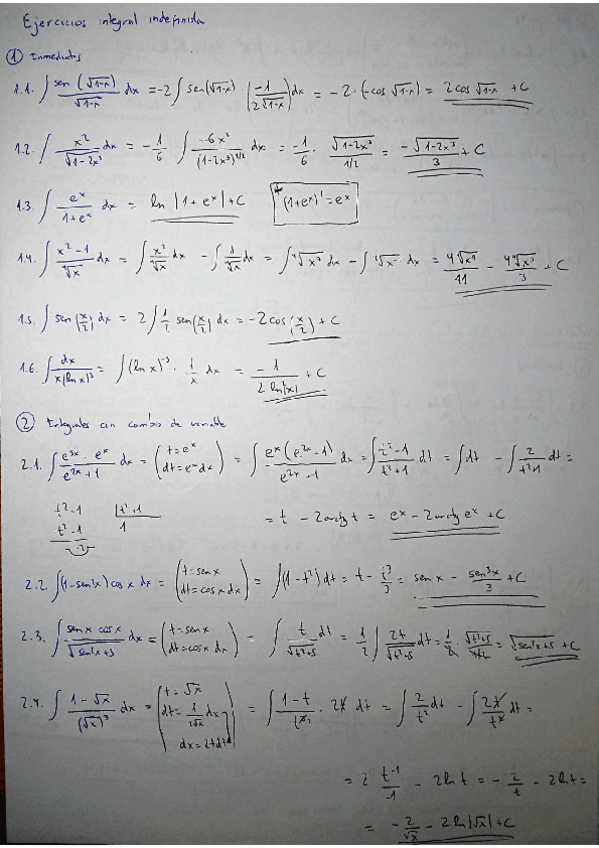 Ejercicios integral indefinida
① Inmediatas
1.1. ∫ sen(√1-x)/√1-x dx = -2∫ sen(√1-x) · (-1/2√1-x) dx = -2·(-cos √1-x) = 2cos √1-x + C
1.2. ∫ x²/√1-2x³ dx = -1/6 ∫ -6x²/(1-2x³)^1/2 dx = -1/6 · √1-2x³/1/2 = -√1-2x³/3 + C
1.3 ∫ eˣ/1+eˣ dx = ln |1+eˣ| + C * (1+eˣ)' = eˣ
1.4. ∫ x²-1/⁴√x dx = ∫ x²/⁴√x dx - ∫ 1/⁴√x dx = ∫ ⁴√x⁷ dx - ∫ ⁴√x⁻¹ dx = 4⁴√x¹¹/11 - 4⁴√x³/3 + C
1.5. ∫ sen(x/2) dx = 2∫ 1/2 sen(x/2) dx = -2cos(x/2) + C
1.6. ∫ dx/x(ln x)³ = ∫ (ln x)⁻³ · 1/x dx = -1/2 ln²|x| + C
② Integrales con cambio de variable
2.1. ∫ e³ˣ - eˣ/e²ˣ+1 dx = (t=eˣ dt=eˣdx) = ∫ eˣ(e²ˣ-1)/e²ˣ+1 dx = ∫ t²-1/t²+1 dt = ∫ dt - ∫ 2/t²+1 dt =
t²-1 |t²+1
t²-1 1
-2
= t - 2arctg t = eˣ - 2arctg eˣ + C
2.2. ∫(1-sen²x) cos x dx = (t=sen x dt=cos x dx) = ∫(1-t²) dt = t - t³/3 = sen x - sen³x/3 + C
2.3. ∫ sen x cos x/√sen²x+5 dx = (t=sen x dt=cos x dx) = ∫ t/√t²+5 dt = 1/2 ∫ 2t/√t²+5 dt = 1/2 · √t²+5/1/2 = √sen²x+5 + C
2.4. ∫ 1-√x/(√x)³ dx = (t=√x dt=1/2√x dx dx=2tdt) = ∫ 1-t/t³ · 2t dt = ∫ 2/t² dt - ∫ 2t/t² dt =
= 2 t⁻¹/-1 - 2ln t = -2/t - 2ln t =
= -2/√x - 2 ln|√x| + C